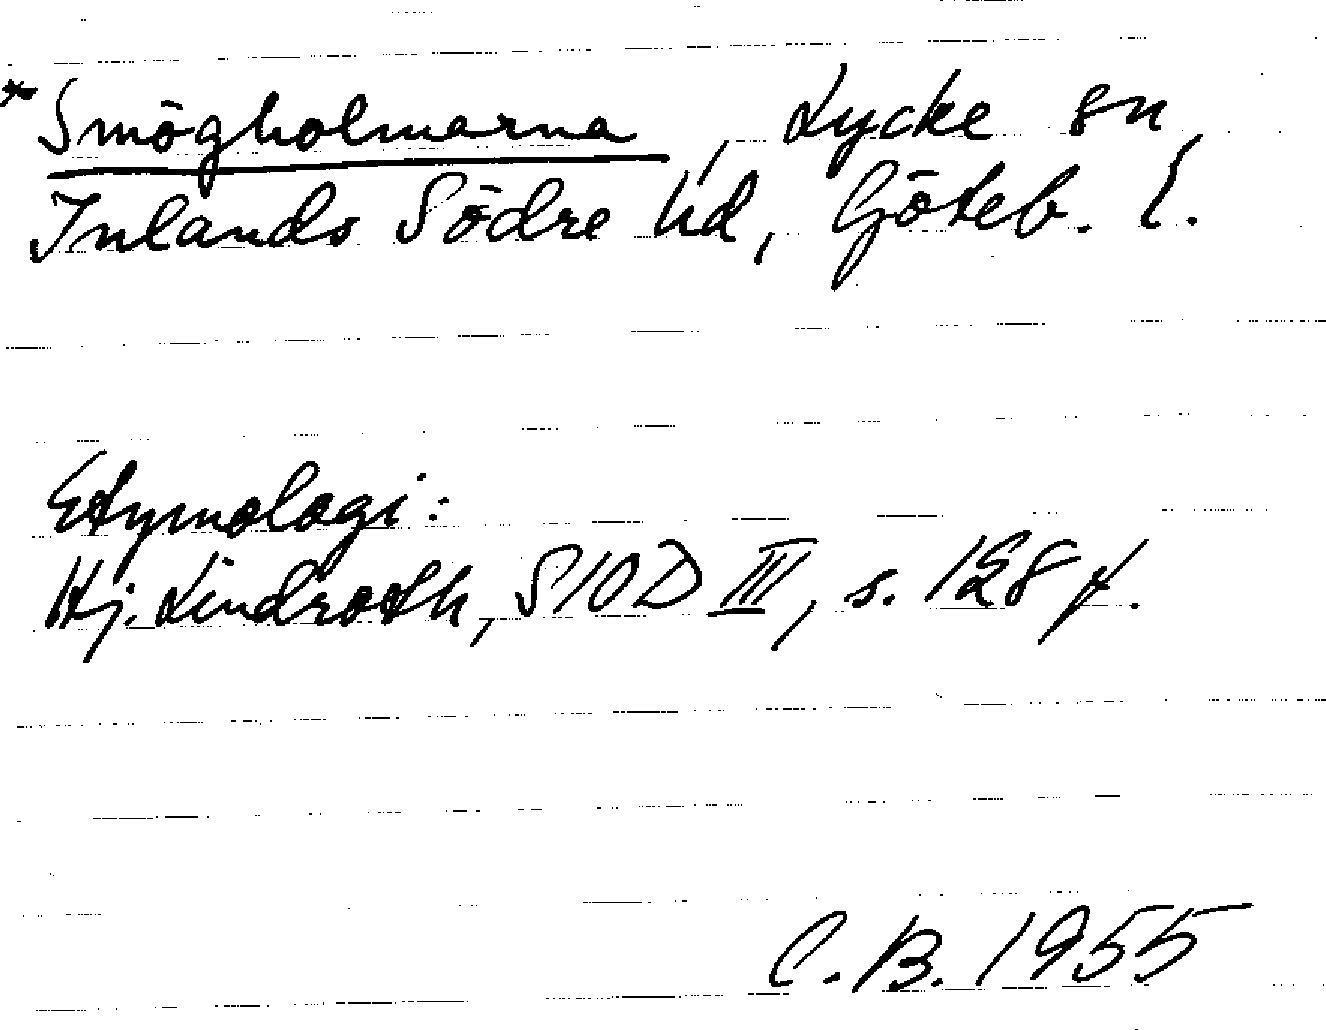 *Smögholmarna, Lycke sn,
Inlands Södre hd, Göteb. l.
Etymologi:
Hj. Lindroth, SIOD III, s. 128 f.
C.B. 1955